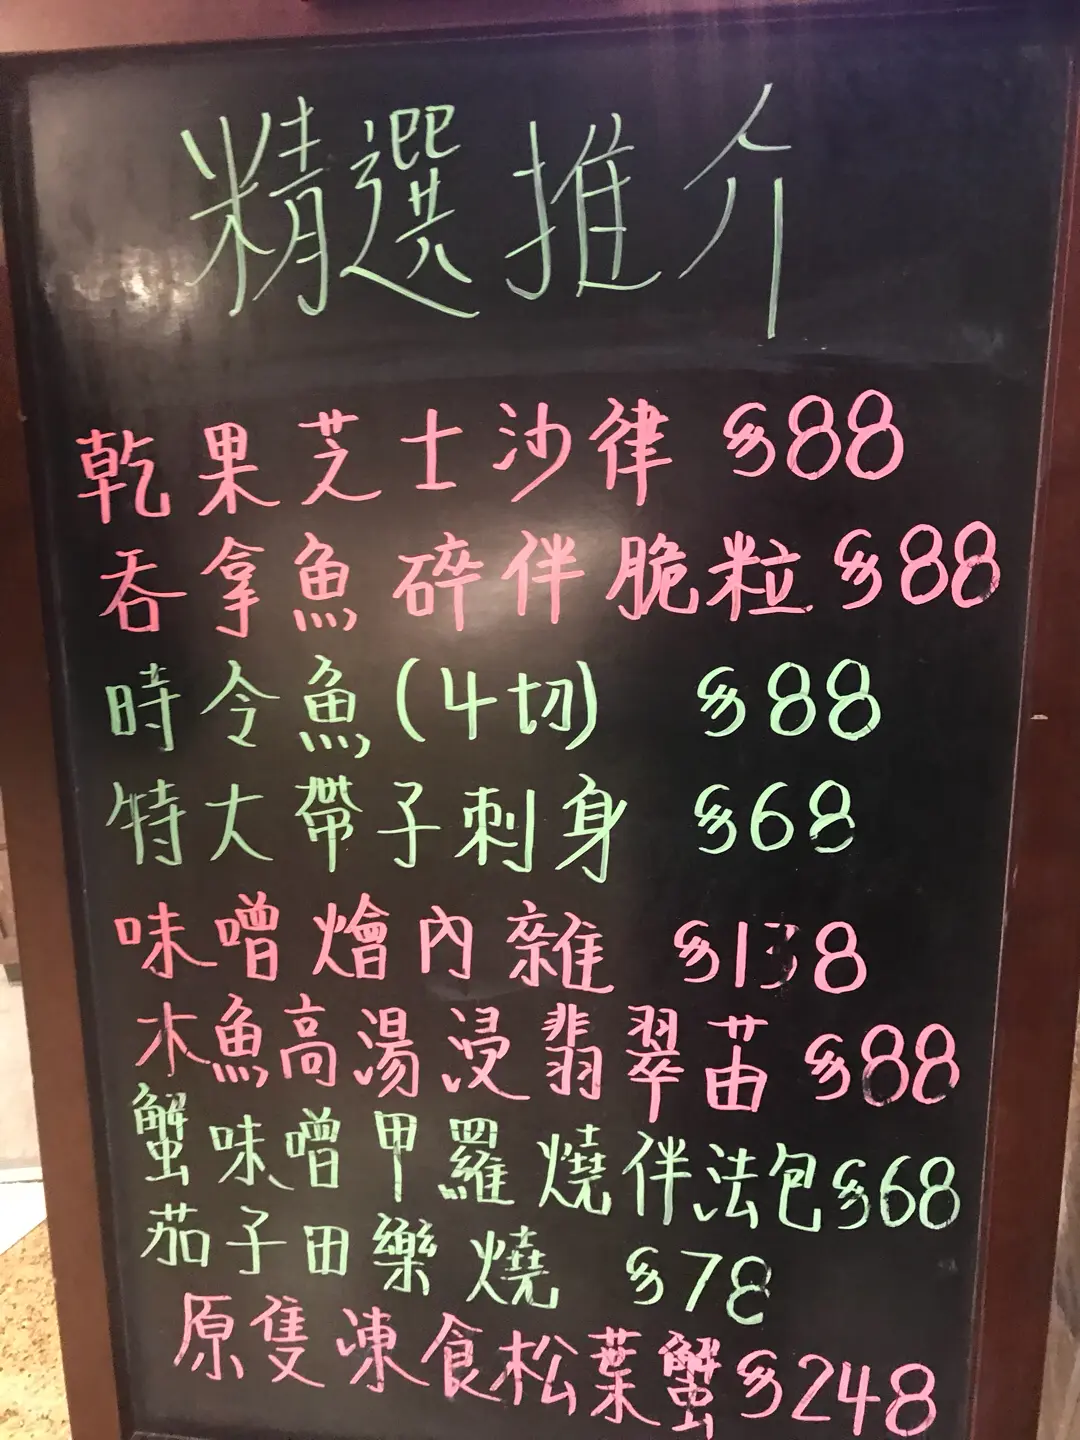 精選推介
乾果芝士沙律 $88
吞拿魚碎伴脆粒 $88
時令魚(4切) $88
特大帶子刺身 $68
味噌燴內雜 $138
木魚高湯浸翡翠苗 $88
蟹味噌甲羅燒伴法包 $68
茄子田樂燒 $78
原隻凍食松葉蟹 $248